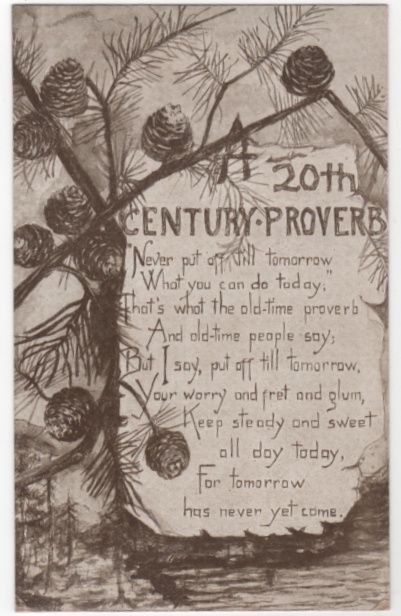 A
20th
CENTURY·PROVERB
"Never put off till tomorrow
What you can do today;"
That's what the old-time proverb
And old-time people say;
But I say, put off till tomorrow,
Your worry and fret and glum,
Keep steady and sweet
all day today,
For tomorrow
has never yet come.